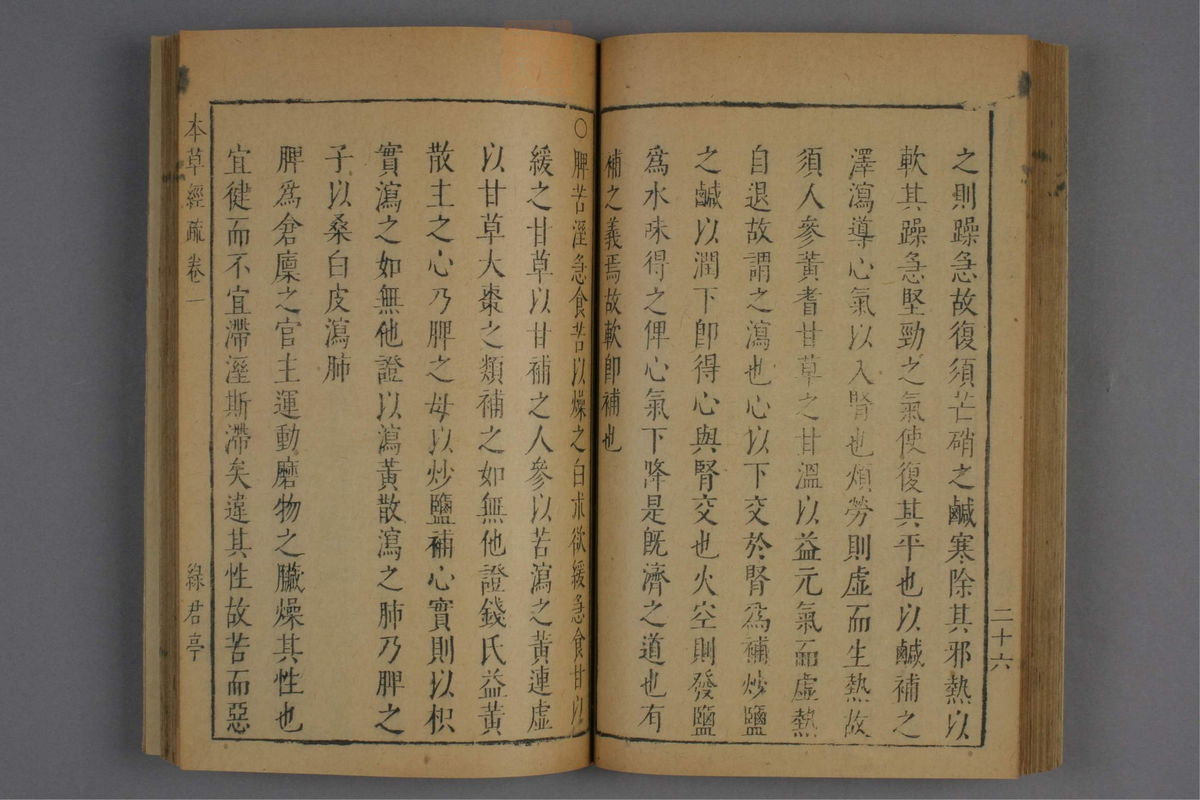 二十六
之則躁急故復須芒硝之鹹寒除其邪熱以
軟其躁急堅勁之氣使復其平也以鹹補之
澤瀉導心氣以入腎也煩勞則虛而生熱故
須人參黃耆甘草之甘溫以益元氣而虛熱
自退故謂之瀉也心以下交於腎爲補炒鹽
之鹹以潤下卽得心與腎交也火空則發鹽
爲水味得之俾心氣下降是旣濟之道也有
補之義焉故軟卽補也
○脾苦溼急食苦以燥之白朮欲緩急食甘以
緩之甘草以甘補之人參以苦瀉之黃連虛
以甘草大棗之類補之如無他證錢氏益黃
散土之心乃脾之母以炒鹽補心實則以枳
實瀉之如無他證以瀉黃散瀉之肺乃脾之
子以桑白皮瀉肺
脾爲倉廩之官主運動磨物之臟燥其性也
宜健而不宜滯溼斯滯矣違其性故苦而惡
本草經疏卷一
綠君亭